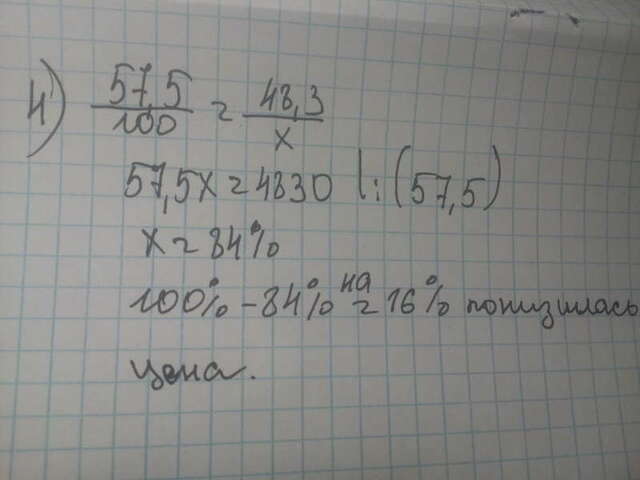 4) 57,5/100 = 48,3/x
57,5x = 4830 |:(57,5)
x = 84%
100% - 84% = на 16% понизилась
цена.